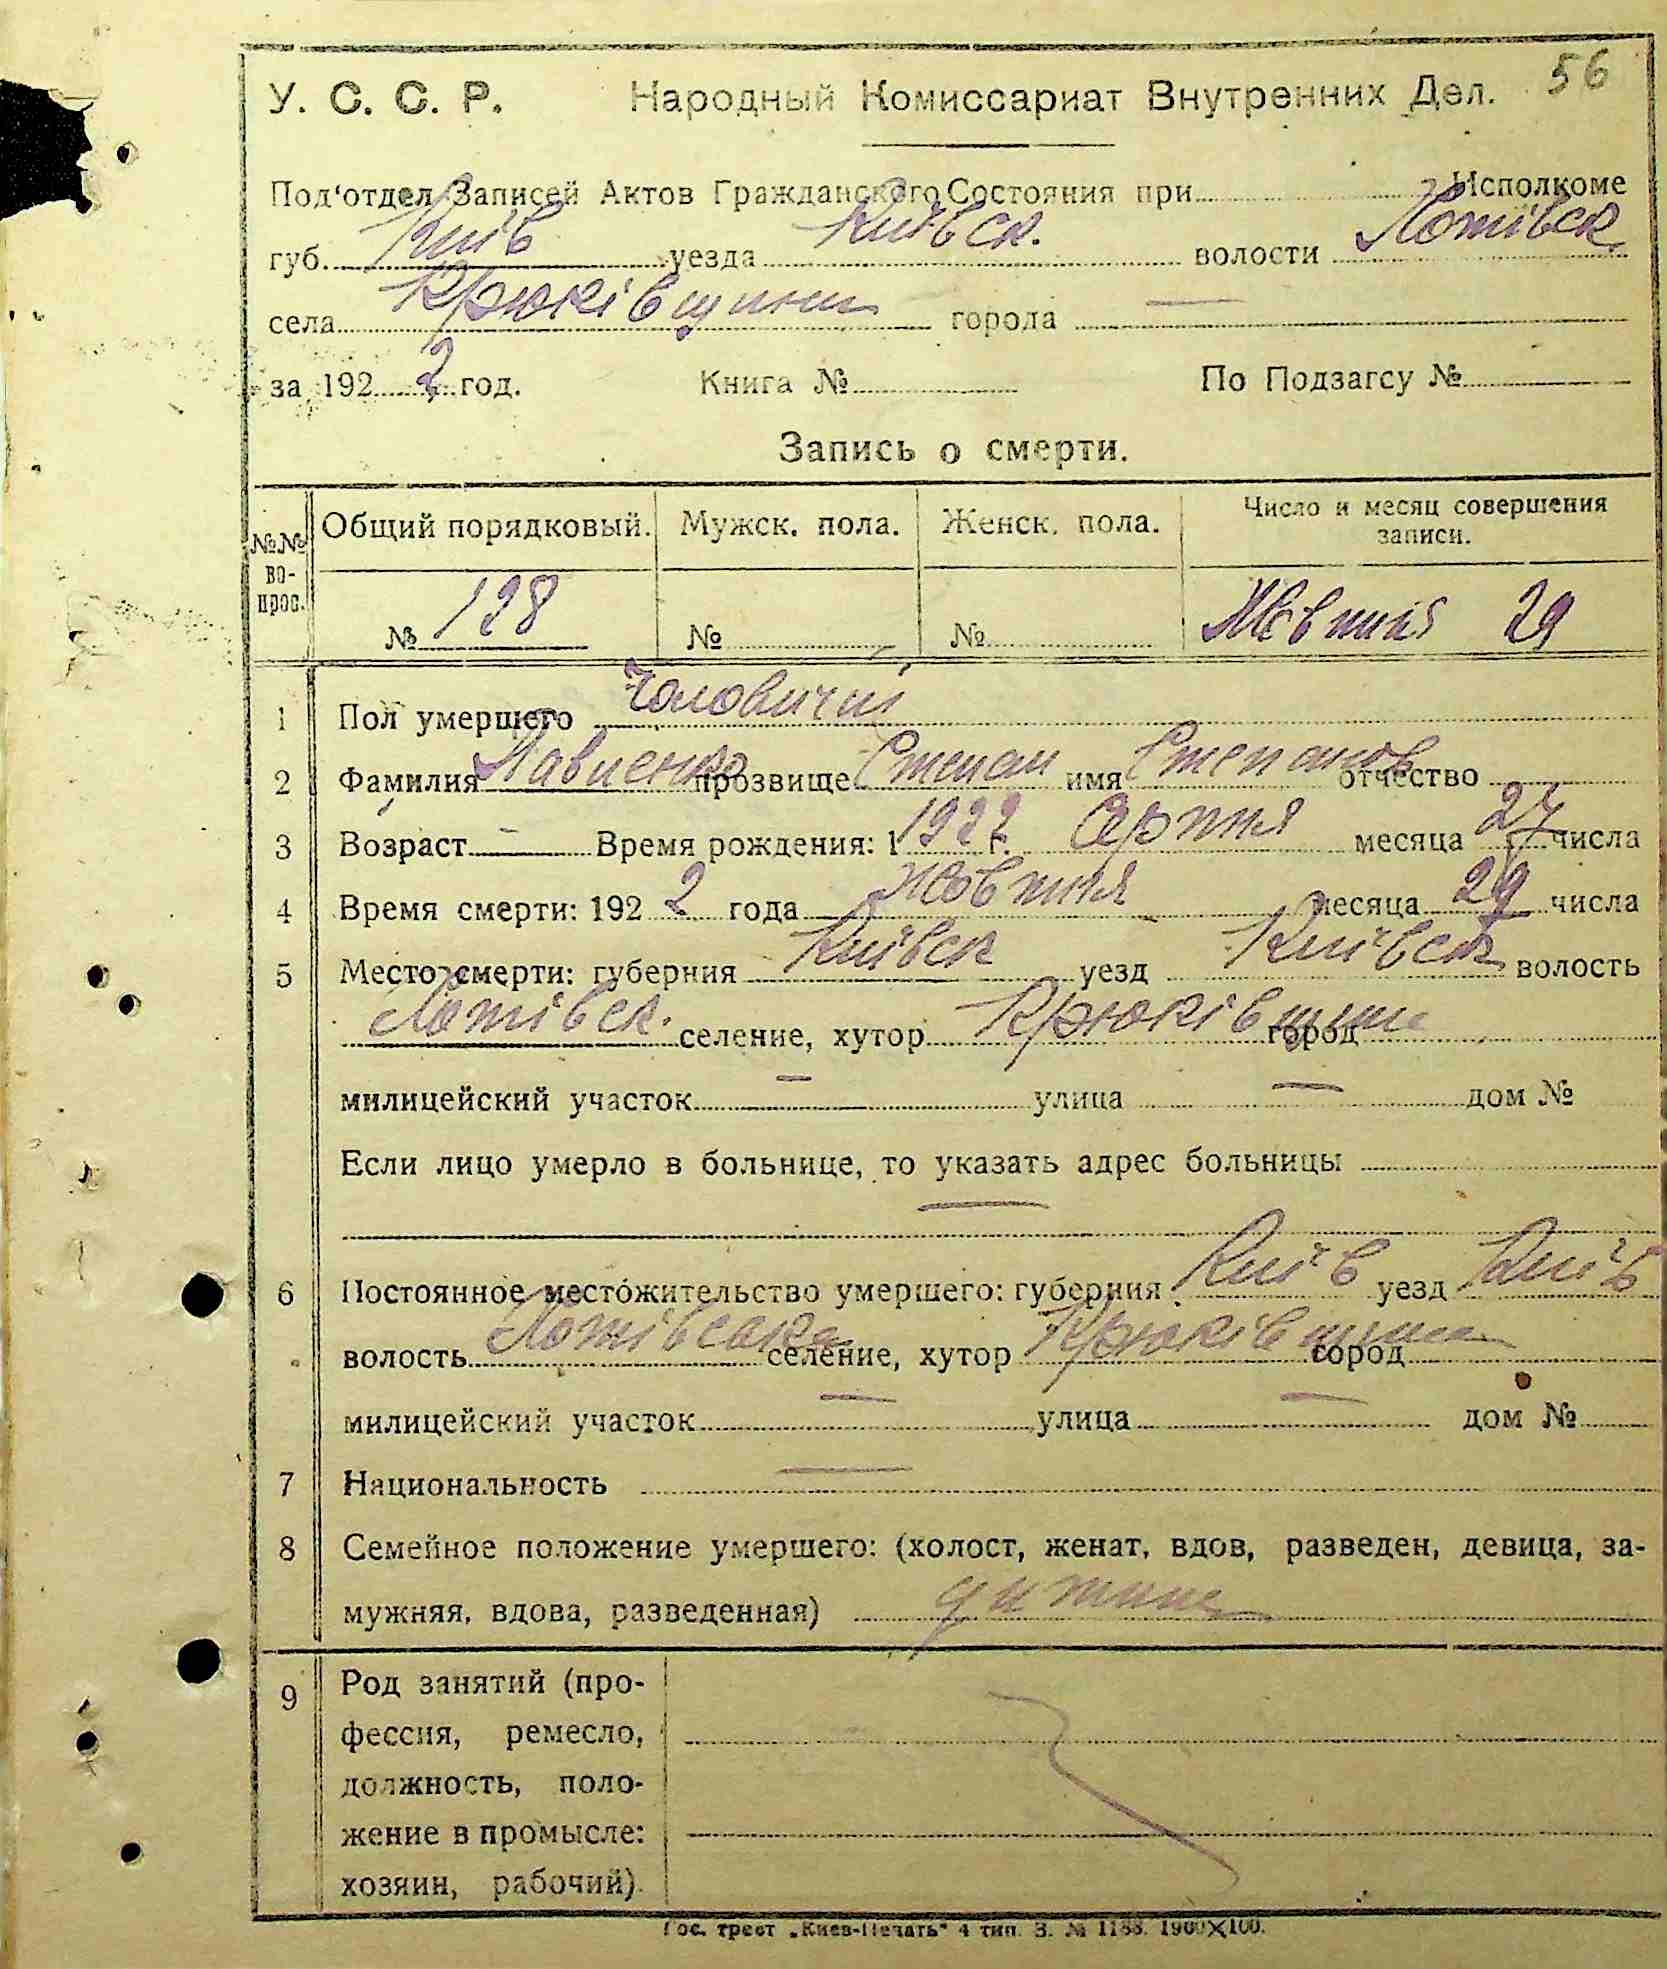 У. С. С. Р. Народный Комиссариат Внутренних Дел. 56
Под'отдел Записей Актов Гражданского Состояния при Исполкоме
губ. Київ уезда Київск. волости Хотівск.
села Крюківщини города —
за 1922 год. Книга № По Подзагсу №
Запись о смерти.
№№ вопрос. Общий порядковый. Мужск. пола. Женск. пола. Число и месяц совершения записи.
№ 128 № № Жовтня 29
1 Пол умершего Чоловичій
2 Фамилия прозвище Степан имя Степанов отчество
3 Возраст — Время рождения: 1 1922 г. Серпня месяца 27 числа
4 Время смерти: 1922 года Жовтня месяца 29 числа
5 Место смерти: губерния Київск уезд Київск волость
Хотівск. селение, хутор Крюківщина город
милицейский участок — улица — дом №
Если лицо умерло в больнице, то указать адрес больницы
—
6 Постоянное местожительство умершего: губерния Київ уезд Київ
волость Хотівська селение, хутор Крюківщина город
милицейский участок — улица — дом №
7 Национальность —
8 Семейное положение умершего: (холост, женат, вдов, разведен, девица, за-
мужняя, вдова, разведенная) дитина
9 Род занятий (про-
фессия, ремесло,
должность, поло-
жение в промысле:
хозяин, рабочий).
Гос. трест „Киев-Печать" 4 тип. З. № 1188. 1900×100.